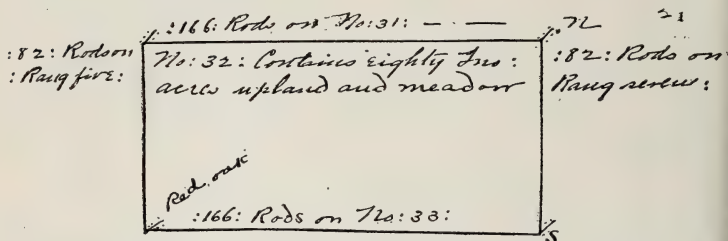 :166: Rods on No:31: — · —
N
21
:82: Rods on
: Rang five:
No: 32: Contains eighty Two:
acres upland and meadow
:82: Rods on
Rang seven:
Red oak
:166: Rods on No:33:
S